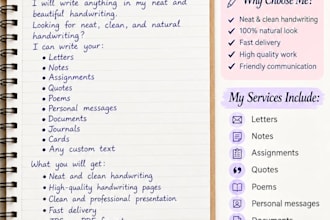 I will write anything in my neat and
beautiful handwriting.
Looking for neat, clean, and natural
handwriting?
I can write your:
• Letters
• Notes
• Assignments
• Quotes
• Poems
• Personal messages
• Documents
• Journals
• Cards
• Any custom text
What you will get:
• Neat and clean handwriting
• High-quality handwriting pages
• Clean and professional presentation
• Fast delivery
Why Choose Me?
✓ Neat & clean handwriting
✓ 100% natural look
✓ Fast delivery
✓ High quality work
✓ Friendly communication
My Services Include:
Letters
Notes
Assignments
Quotes
Poems
Personal messages
Documents